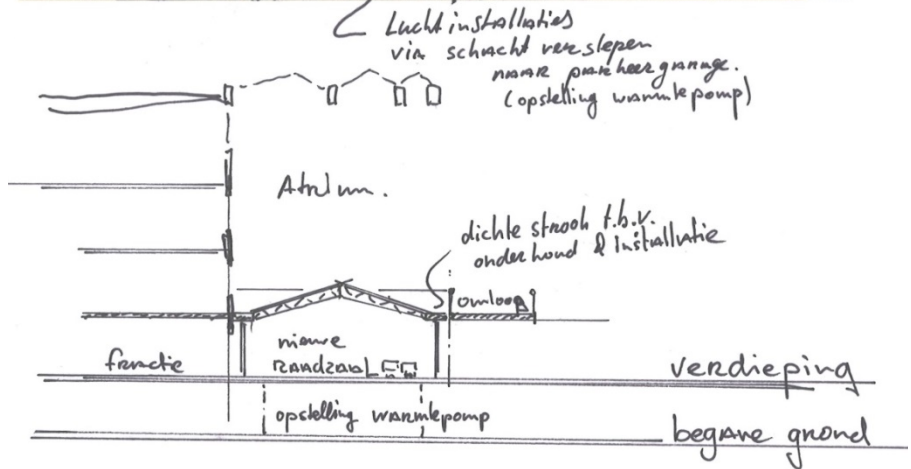 Luchtinstallaties
via schacht verslepen
naar parkeergarage.
(opstelling warmtepomp)
Atrium.
dichte strook t.b.v.
onderhoud & installatie
omloop
nieuwe
raadzaal
fractie
verdieping
opstelling warmtepomp
begane grond